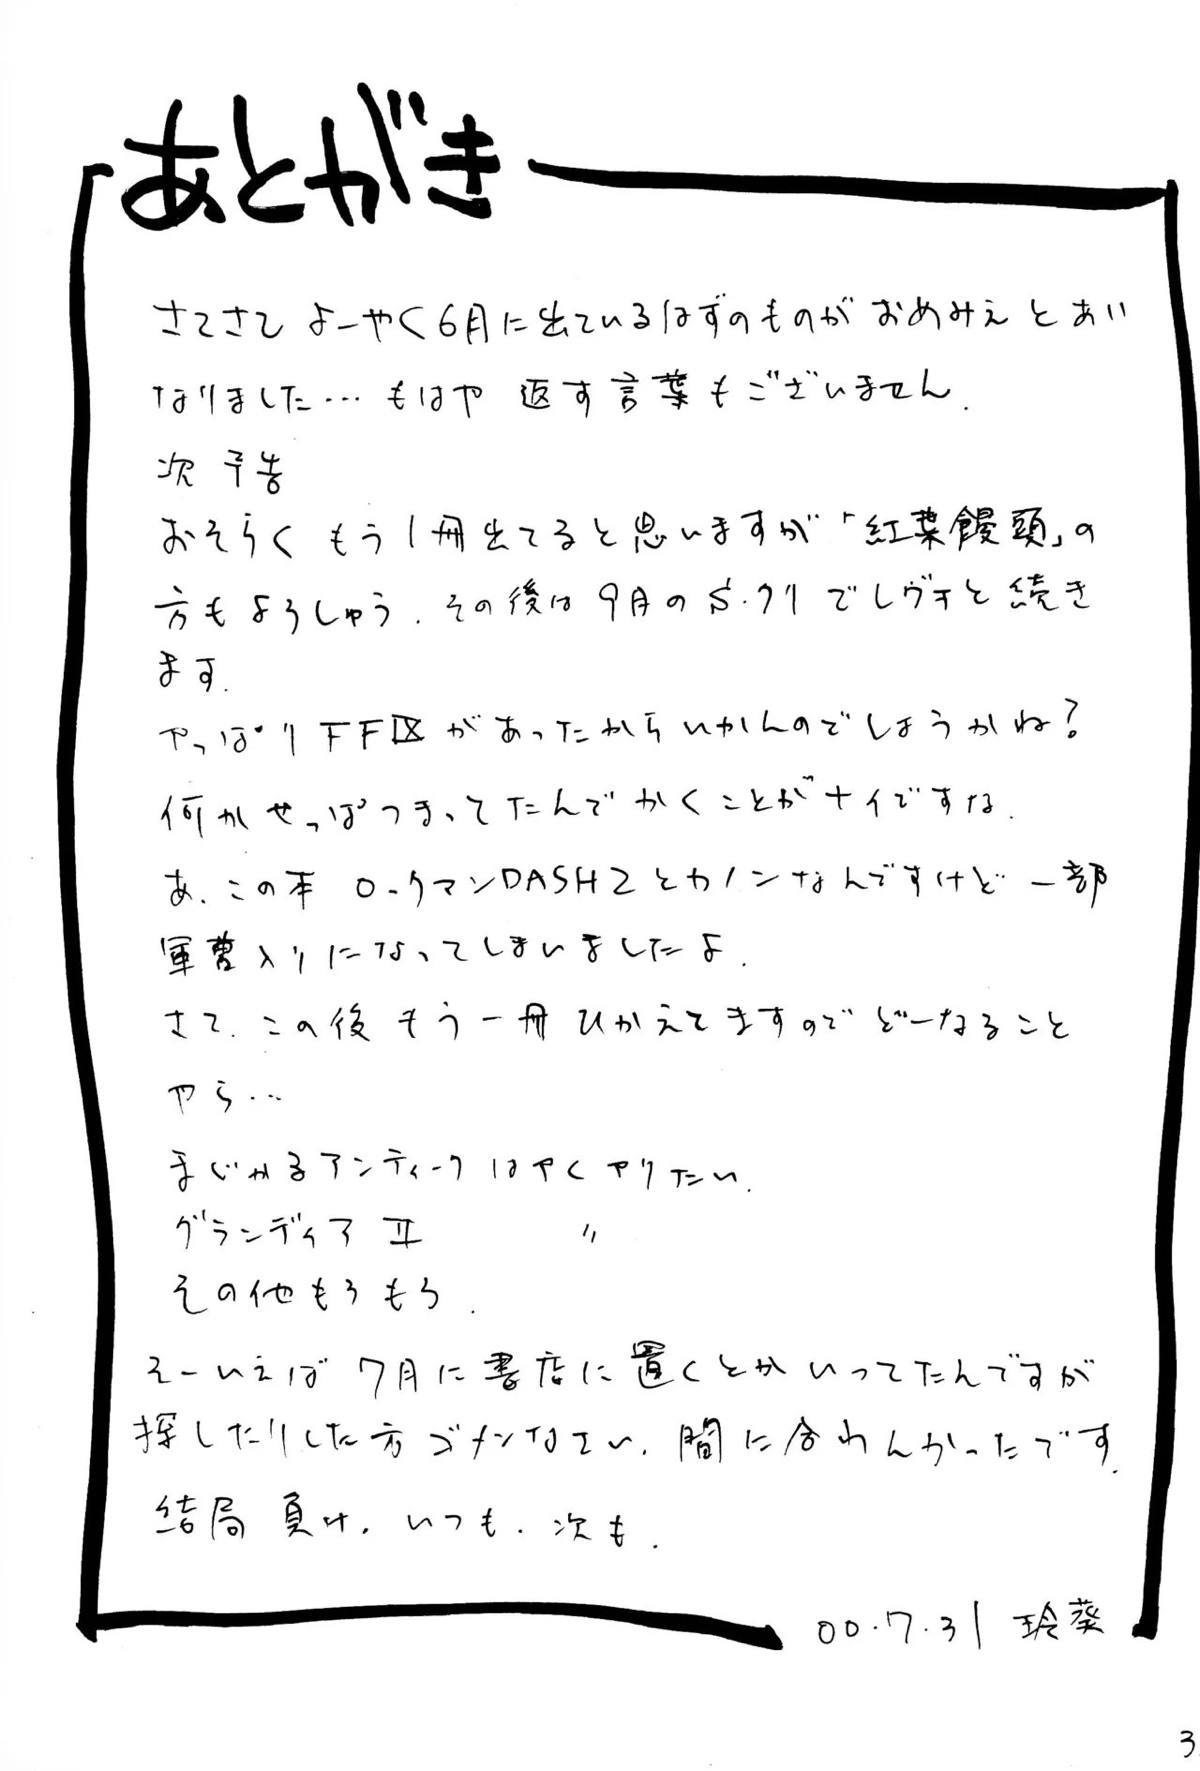 あとがき
さてさて よーやく6月に出ているはずのものが おめみえ とあい
なりました… もはや 返す言葉もございません.
次 予告
おそらく もう1冊出てると思いますが「紅葉饅頭」の
方もよろしゅう. その後は 9月のS.クリ でレヴォと続き
ます.
やっぱり FFⅨ があったから いかんのでしょうかね?
何か せっぱつまってたんで かくことがナイですな.
あ、この本 ロックマンDASH2 とカノンなんですけど 一部
軍曹入りになってしまいましたよ.
さて、この後 もう一冊 ひかえてますので どーなること
やら…
まじかるアンティーク はやく やりたい.
グランディア Ⅱ 〃
その他もろもろ.
そーいえば 7月に書店に置くとかいってたんですが
探したりした方ゴメンなさい、間に合わんかったです.
結局 負け. いつも. 次も.
00.7.31 玲葵
3